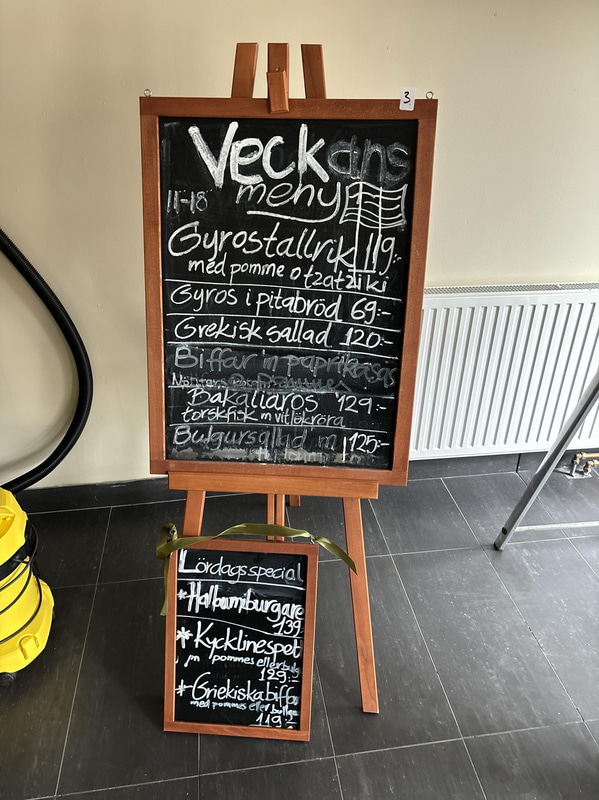 3
Veckans
meny
11-18
Gyrostallrik 119:-
med pomme o tzatziki
Gyros i pitabröd 69:-
Grekisk sallad 120:-
Biffar m paprikasås
Bakaliaros 129:-
torskfisk m vitlökröra
Bulgursallad m 125:-
Lördagsspecial
*Halloumiburgare
139
*Kycklinespet
m pommes eller bulg
129:-
*Griekiska biffar
med pommes eller bullgu
119:-